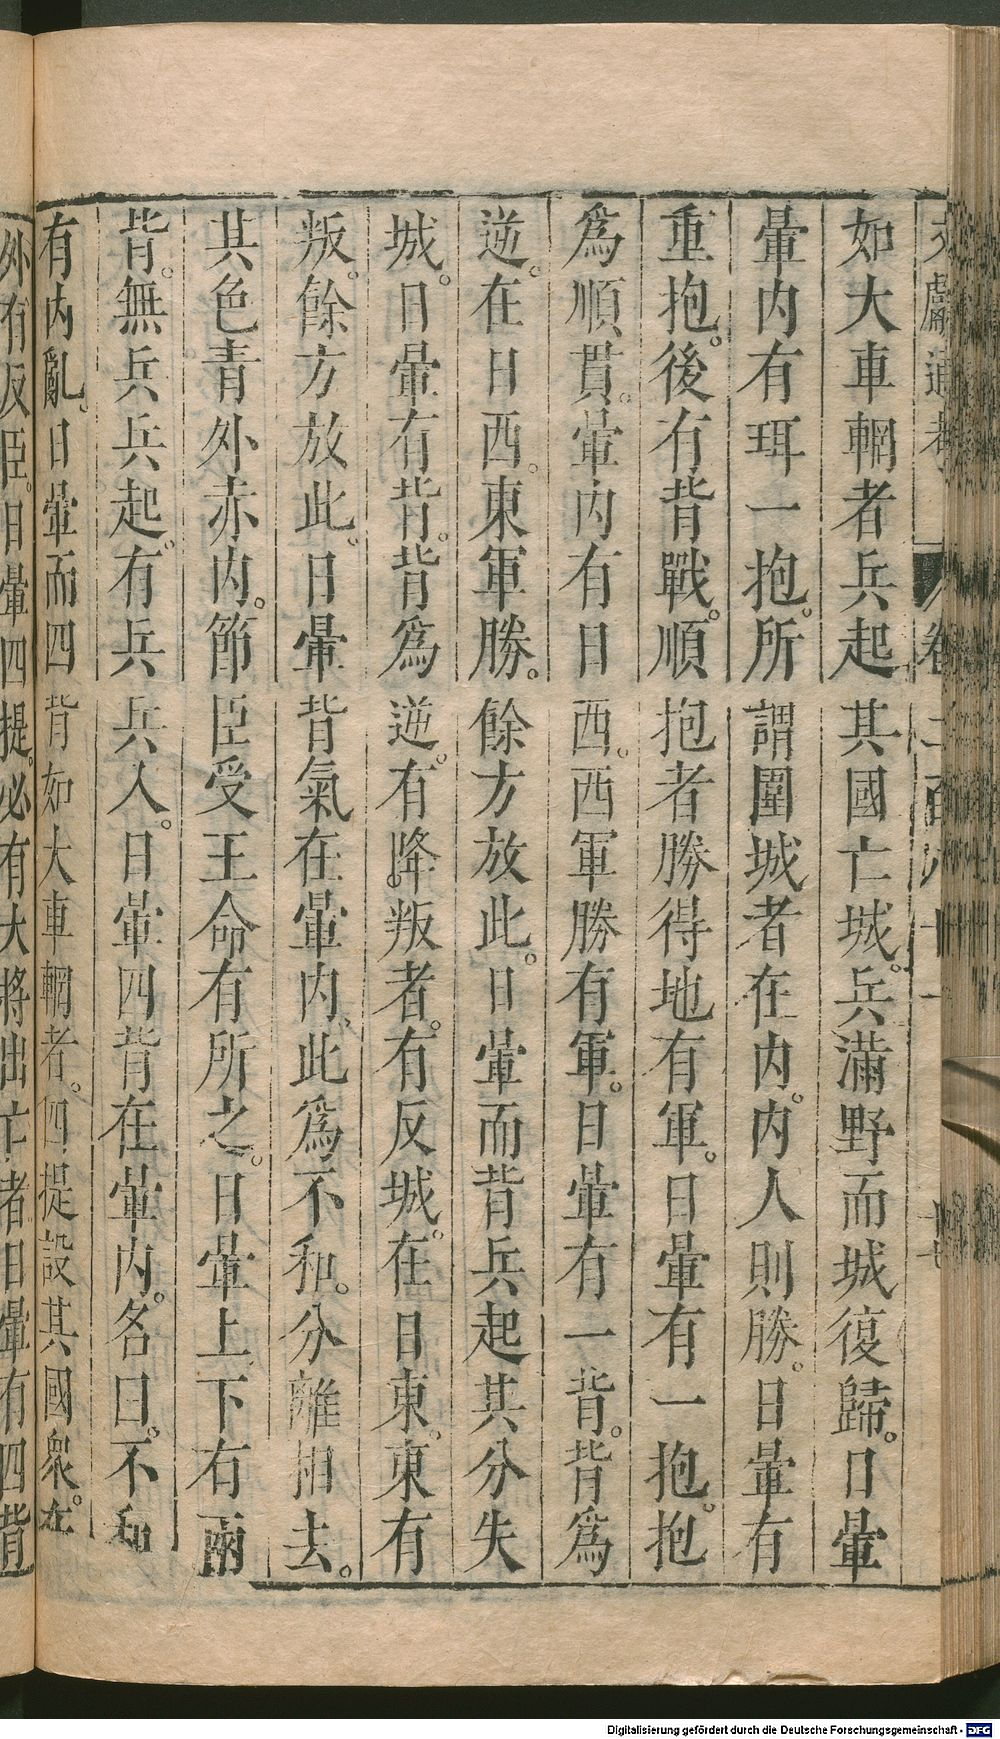 文獻通考　卷二百八十一　十七
如大車輞者兵起其國亡城兵滿野而城復歸日暈
暈內有珥一抱所謂圍城者在內內人則勝日暈有
重抱後有背戰順抱者勝得地有軍日暈有一抱抱
為順貫暈內有日西西軍勝有軍日暈有一背背為
逆在日西東軍勝餘方放此日暈而背兵起其分失
城日暈有背背為逆有降叛者有反城在日東東有
叛餘方放此日暈背氣在暈內此為不和分離相去
其色青外赤內節臣受王命有所之日暈上下右兩
背無兵兵起有兵兵入日暈四背在暈內名曰不和
有內亂日暈而四背如大車輞者四提設其國衆在
外有反臣日暈四提必有大將出亡者日暈有四背
Digitalisierung gefördert durch die Deutsche Forschungsgemeinschaft - DFG